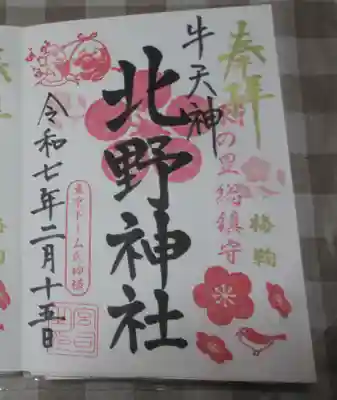 奉拝
の里総鎮守
牛天神
北野神社
東京ドーム氏神様
令和七年二月十五日